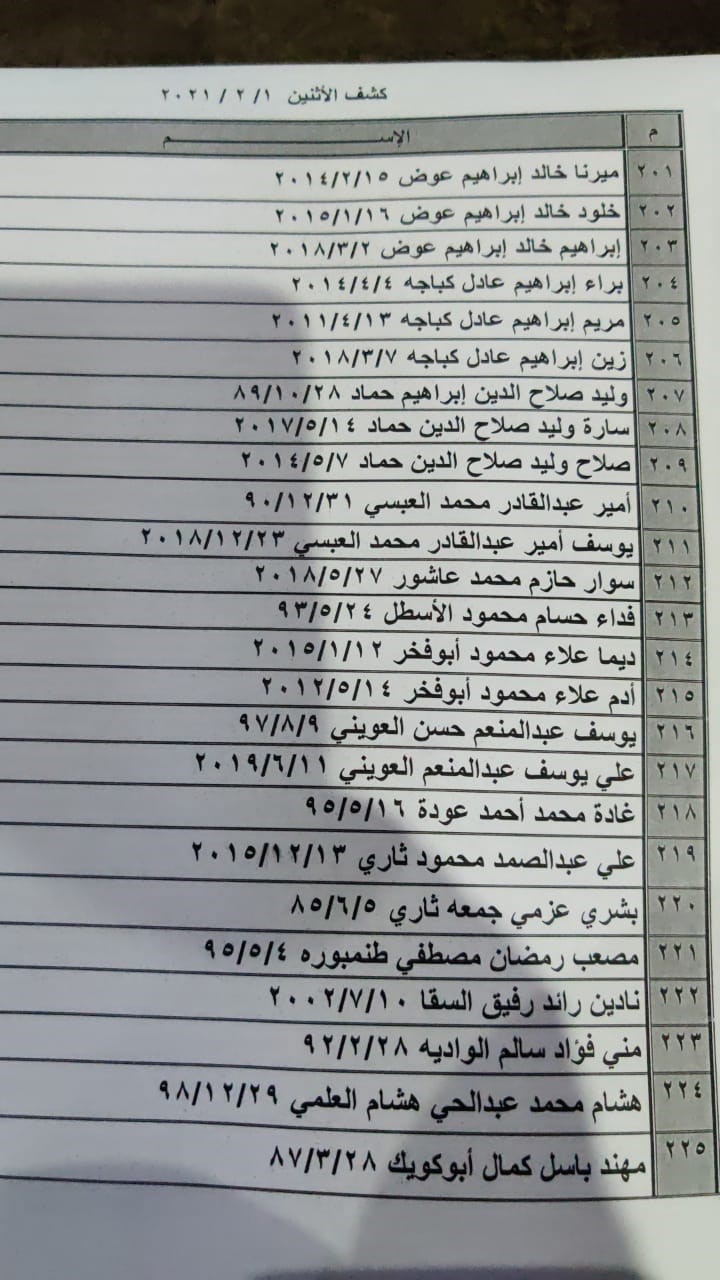 كشف الأثنين ٢٠٢١/٢/١
م الإســـــــــم
٢٠١ ميرنا خالد إبراهيم عوض ٢٠١٤/٢/١٥
٢٠٢ خلود خالد إبراهيم عوض ٢٠١٥/١/١٦
٢٠٣ إبراهيم خالد إبراهيم عوض ٢٠١٨/٣/٢
٢٠٤ براء إبراهيم عادل كباجه ٢٠١٤/٤/٤
٢٠٥ مريم إبراهيم عادل كباجه ٢٠١١/٤/١٣
٢٠٦ زين إبراهيم عادل كباجه ٢٠١٨/٣/٧
٢٠٧ وليد صلاح الدين إبراهيم حماد ٨٩/١٠/٢٨
٢٠٨ سارة وليد صلاح الدين حماد ٢٠١٧/٥/١٤
٢٠٩ صلاح وليد صلاح الدين حماد ٢٠١٤/٥/٧
٢١٠ أمير عبدالقادر محمد العبسي ٩٠/١٢/٣١
٢١١ يوسف أمير عبدالقادر محمد العبسي ٢٠١٨/١٢/٢٣
٢١٢ سوار حازم محمد عاشور ٢٠١٨/٥/٢٧
٢١٣ فداء حسام محمود الأسطل ٩٣/٥/٢٤
٢١٤ ديما علاء محمود أبوفخر ٢٠١٥/١/١٢
٢١٥ أدم علاء محمود أبوفخر ٢٠١٢/٥/١٤
٢١٦ يوسف عبدالمنعم حسن العويني ٩٧/٨/٩
٢١٧ علي يوسف عبدالمنعم العويني ٢٠١٩/٦/١١
٢١٨ غادة محمد أحمد عودة ٩٥/٥/١٦
٢١٩ علي عبدالصمد محمود ثاري ٢٠١٥/١٢/١٣
٢٢٠ بشري عزمي جمعه ثاري ٨٥/٦/٥
٢٢١ مصعب رمضان مصطفي طنمبوره ٩٥/٥/٤
٢٢٢ نادين رائد رفيق السقا ٢٠٠٢/٧/١٠
٢٢٣ مني فؤاد سالم الواديه ٩٢/٢/٢٨
٢٢٤ هشام محمد عبدالحي هشام العلمي ٩٨/١٢/٢٩
٢٢٥ مهند باسل كمال أبوكويك ٨٧/٣/٢٨